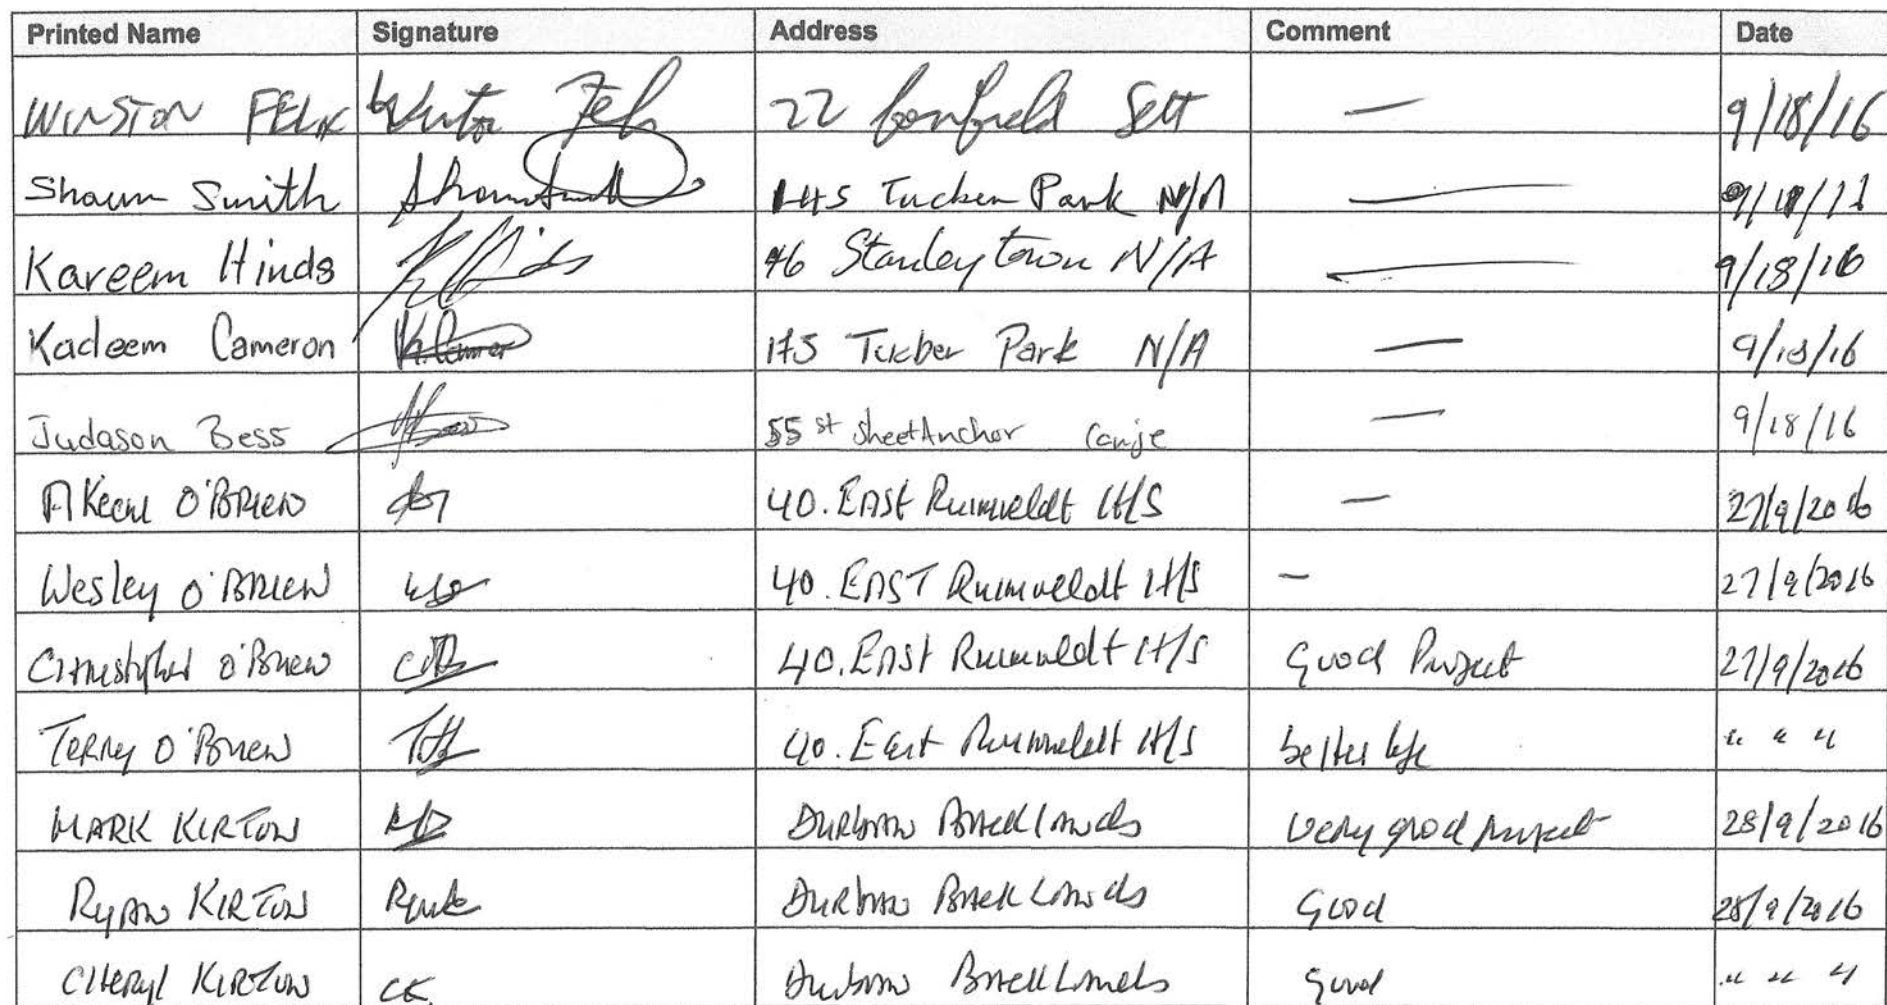 Printed Name Signature Address Comment Date
WINSTON FELIX 22 Sett — 9/18/16
Shawn Smith 145 Tucker Park N/A — 9/18/11
Kareem Hinds K Hinds 46 Stanleytown N/A — 9/18/16
Kadeem Cameron K. Cameron 175 Tucber Park N/A — 9/18/16
Judason Bess 55 st SheetAnchor Canje — 9/18/16
AKeem O'BRIEN 40. EAST Ruimveldt H/S — 27/9/2016
Wesley O'BRIEN 40. EAST Ruimveldt H/S — 27/9/2016
Christopher O'Brien 40. EAST Ruimveldt H/S Good Project 27/9/2016
TERRY O'Brien 40. East Ruimveldt H/S better life " " "
MARK KIRTON DURBAN BackLands very good project 28/9/2016
RYAN KIRTON DURBAN Back Lands Good 28/9/2016
CHERYL KIRTON CK Durban BackLands Good " " "